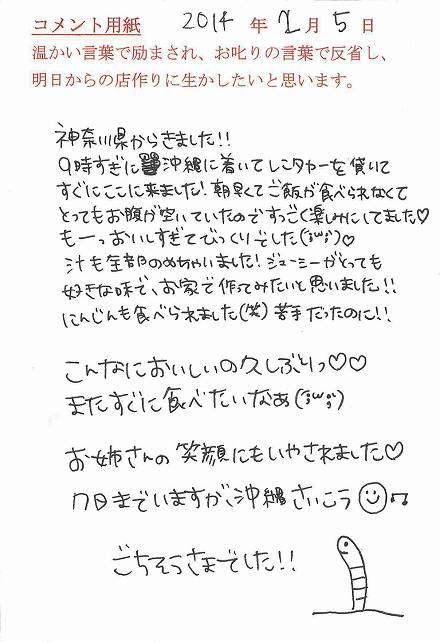 コメント用紙 2014 年 2 月 5 日
温かい言葉で励まされ、お叱りの言葉で反省し、
明日からの店作りに生かしたいと思います。
神奈川県からきました!!
9時すぎに沖縄に着いてレンタカーを貸りて
すぐにここに来ました!朝早くてご飯が食べられなくて
とってもお腹が空いていたのですっごく楽しみにしてました♡
も一っおいしすぎてびっくりでした(;ω;)♡
汁も全部のめちゃいました!ジューシーがとっても
好きな味で、お家で作ってみたいと思いました!!
にんじんも食べられました(笑)苦手だったのに!!
こんなにおいしいの久しぶりっ♡♡
またすぐに食べたいなぁ(;ω;)
お姉さんの笑顔にもいやされました♡
7日までいますが、沖縄さいこう☺♫
ごちそうさまでした!!